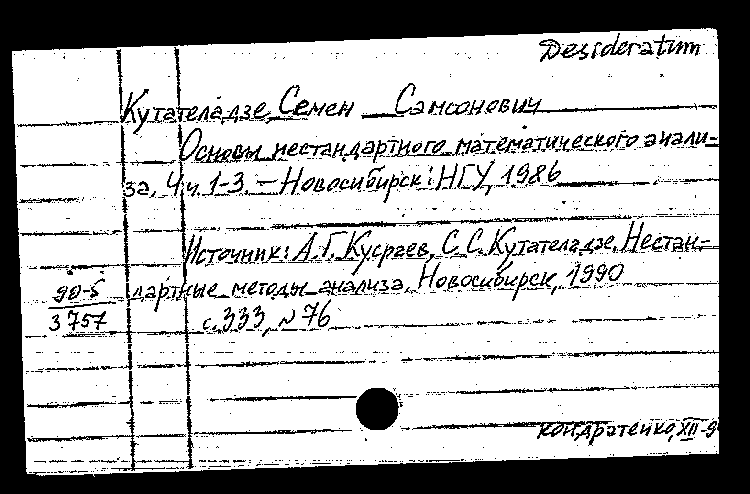 Desideratum
Кутателадзе, Семен Самсонович
Основы нестандартного математического анали-
за, Ч.ч. 1-3. — Новосибирск: НГУ, 1986
Источник: А.Г. Кусраев, С.С. Кутателадзе. Нестан-
дартные методы анализа. Новосибирск, 1990
с. 333, № 76
90-5
3757
Кондратенко, XII-9